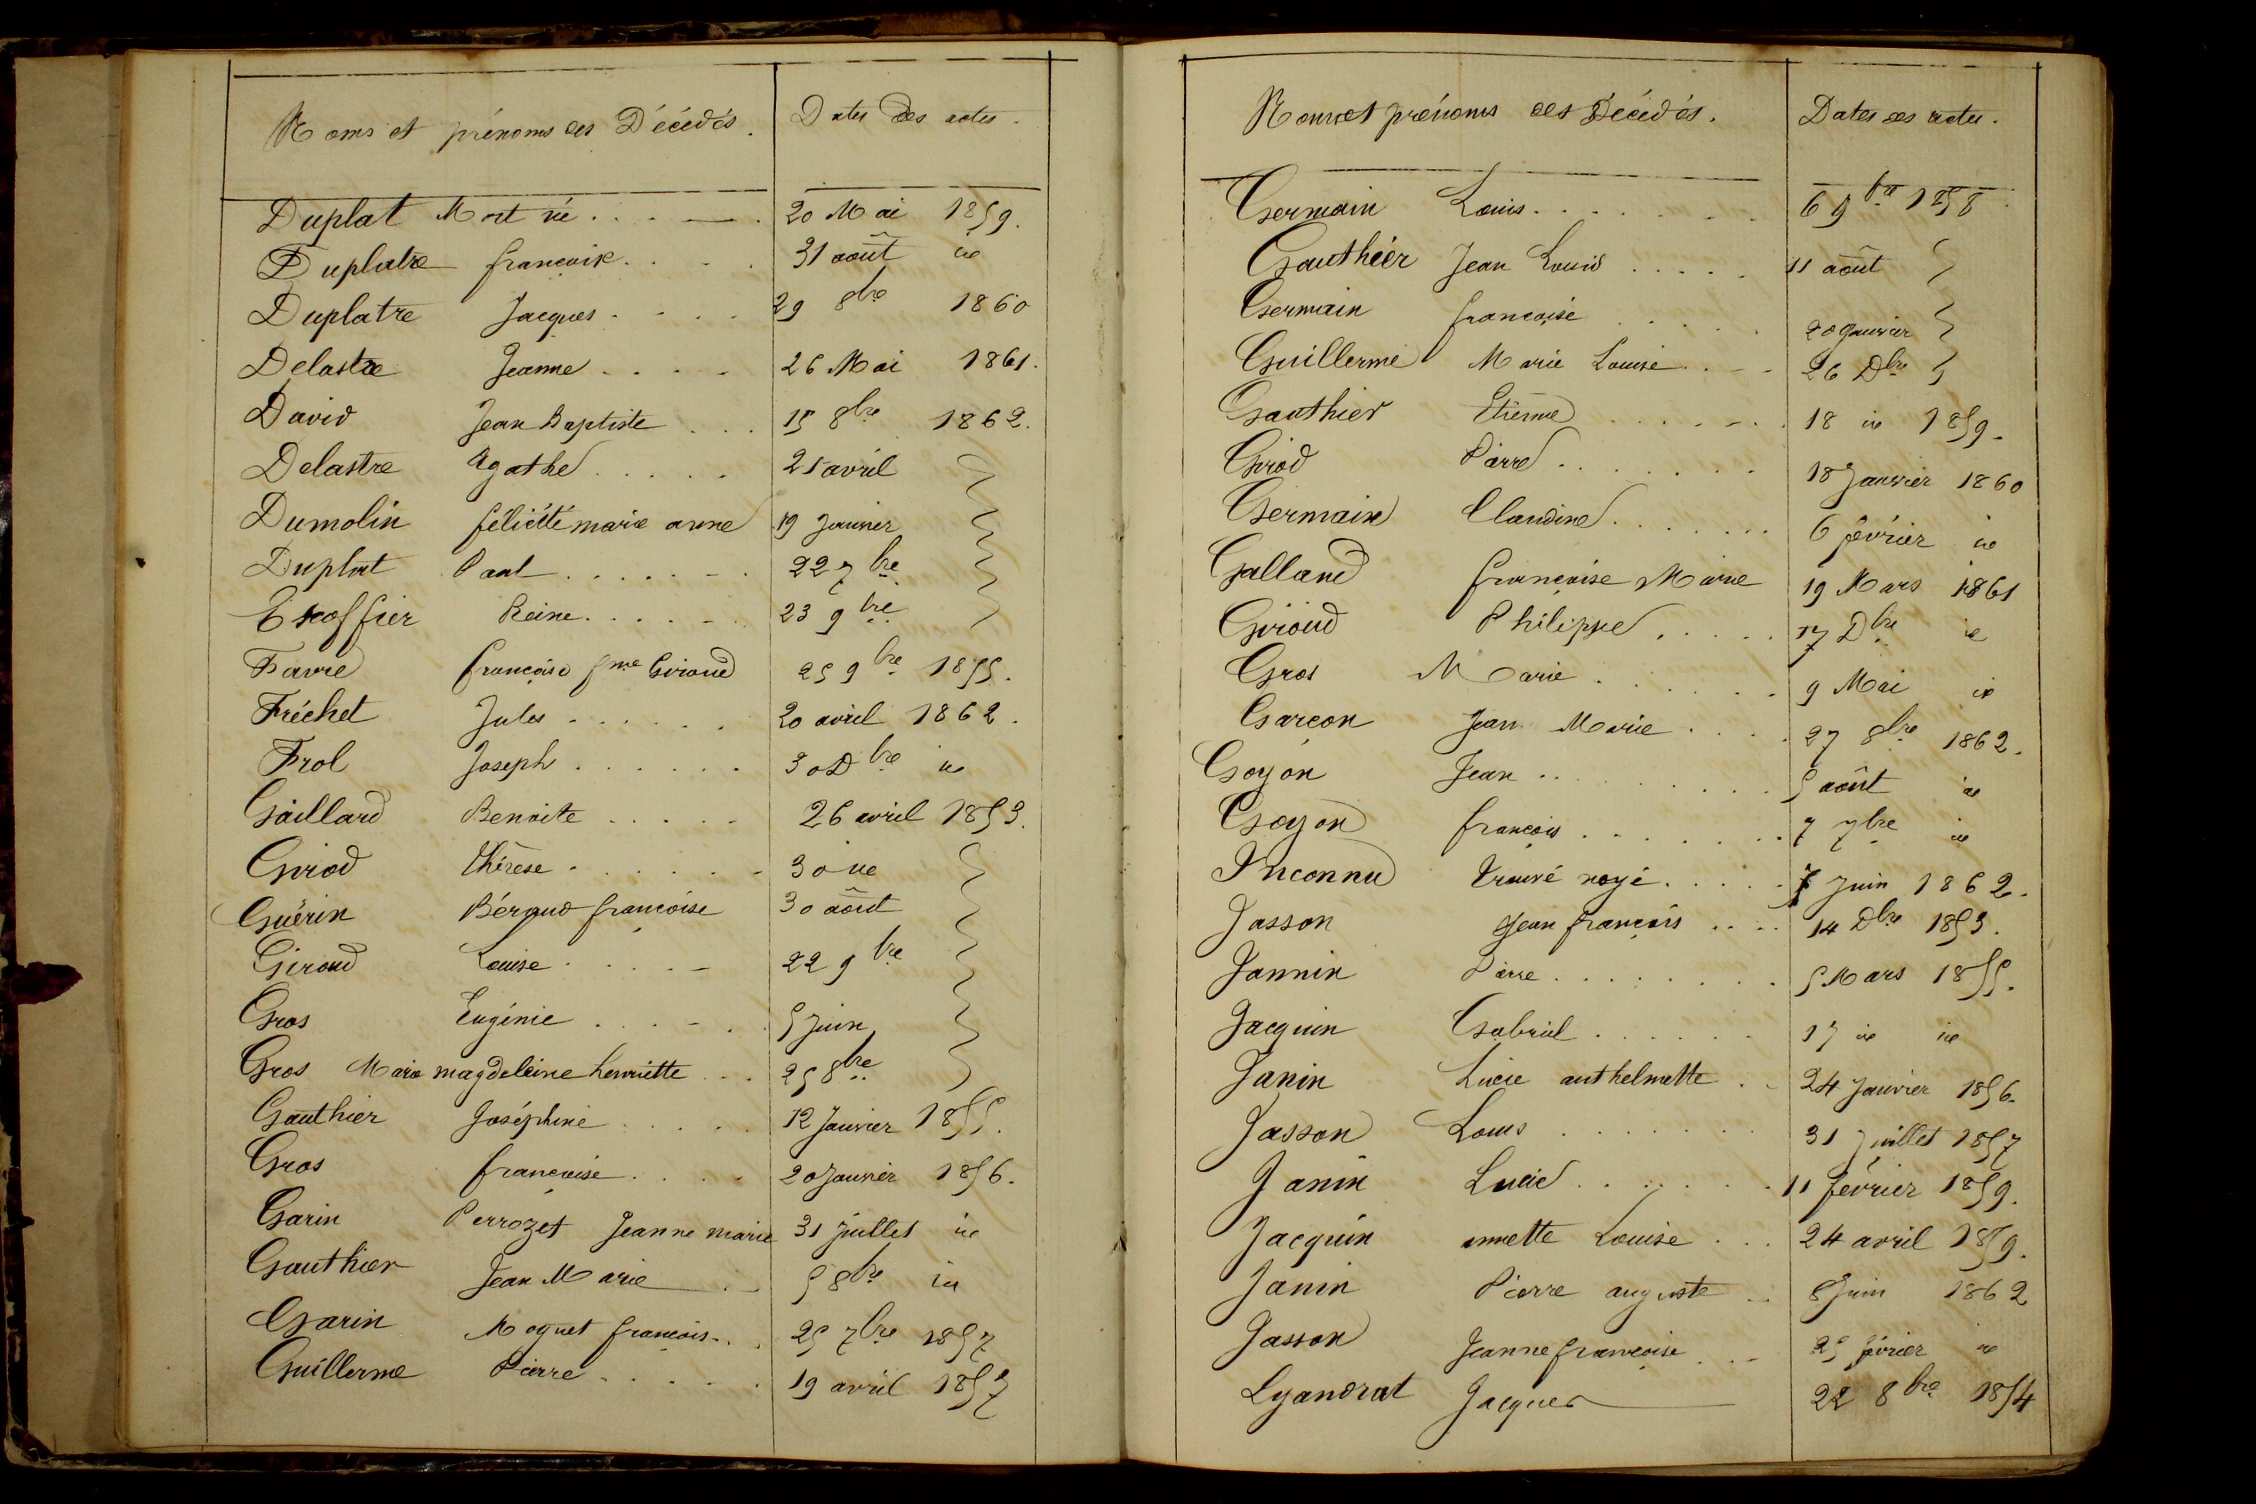 Noms et prénoms des Décédés. Dates des actes.
Duplat Mort né 20 Mai 1859.
Duplatre françoise 31 août id
Duplatre Jacques 29 8bre 1860
Delastre Jeanne 26 Mai 1861.
David Jean Baptiste 15 8bre 1862.
Delastre Agathe 21 avril
Dumolin félicité marie anne 19 Janvier
Duplat Paul 22 7bre
Exoffier Reine 23 9bre
Favre françoise fme Giroud 25 9bre 1855.
Fréchet Jules 20 avril 1862.
Frol Joseph 30 Dbre id
Gaillard Benoite 26 avril 1853.
Girod thérèse 30 id
Guérin Béraud françoise 30 août
Giroud Louise 22 9bre
Gros Eugénie 5 Juin
Gros Marie magdeleine henriette 25 8bre
Gauthier Joséphine 12 Janvier 1855.
Gros françoise 20 Janvier 1856.
Garin Perrozet Jeanne marie 31 Juillet id
Gauthier Jean Marie 5 8bre id
Garin Moguet françois 25 7bre 1857
Guillerme Pierre 19 avril 1857
Noms et prénoms des Décédés. Dates des actes.
Germain Louis 6 9bre 1858
Gauthier Jean Louis 11 août
Germain françoise 20 Janvier
Guillerme Marie Louise 26 Dbre
Gauthier Etienne 18 id 1859.
Girod Pierre 18 Janvier 1860
Germain Claudine 6 février id
Galland françoise Marie 19 Mars 1861
Giroud Philippe 17 Dbre id
Gros Marie 9 Mai id
Garçon Jean Marie 27 8bre 1862.
Goyon Jean 5 août id
Goyon françois 7 7bre id
Inconnu trouvé noyé Juin 1862.
Jasson Jean françois 14 Dbre 1853.
Jannin Pierre 5 Mars 1855.
Jacquin Gabriel 17 id id
Janin Lucie anthelmette 24 Janvier 1856.
Jasson Louis 31 Juillet 1857
Janin Lucie 11 février 1859.
Jacquin annette Louise 24 avril 1859.
Janin Pierre auguste 8 Juin 1862
Jasson Jeanne françoise 25 février id
Lyandrat Jacques 22 8bre 1854